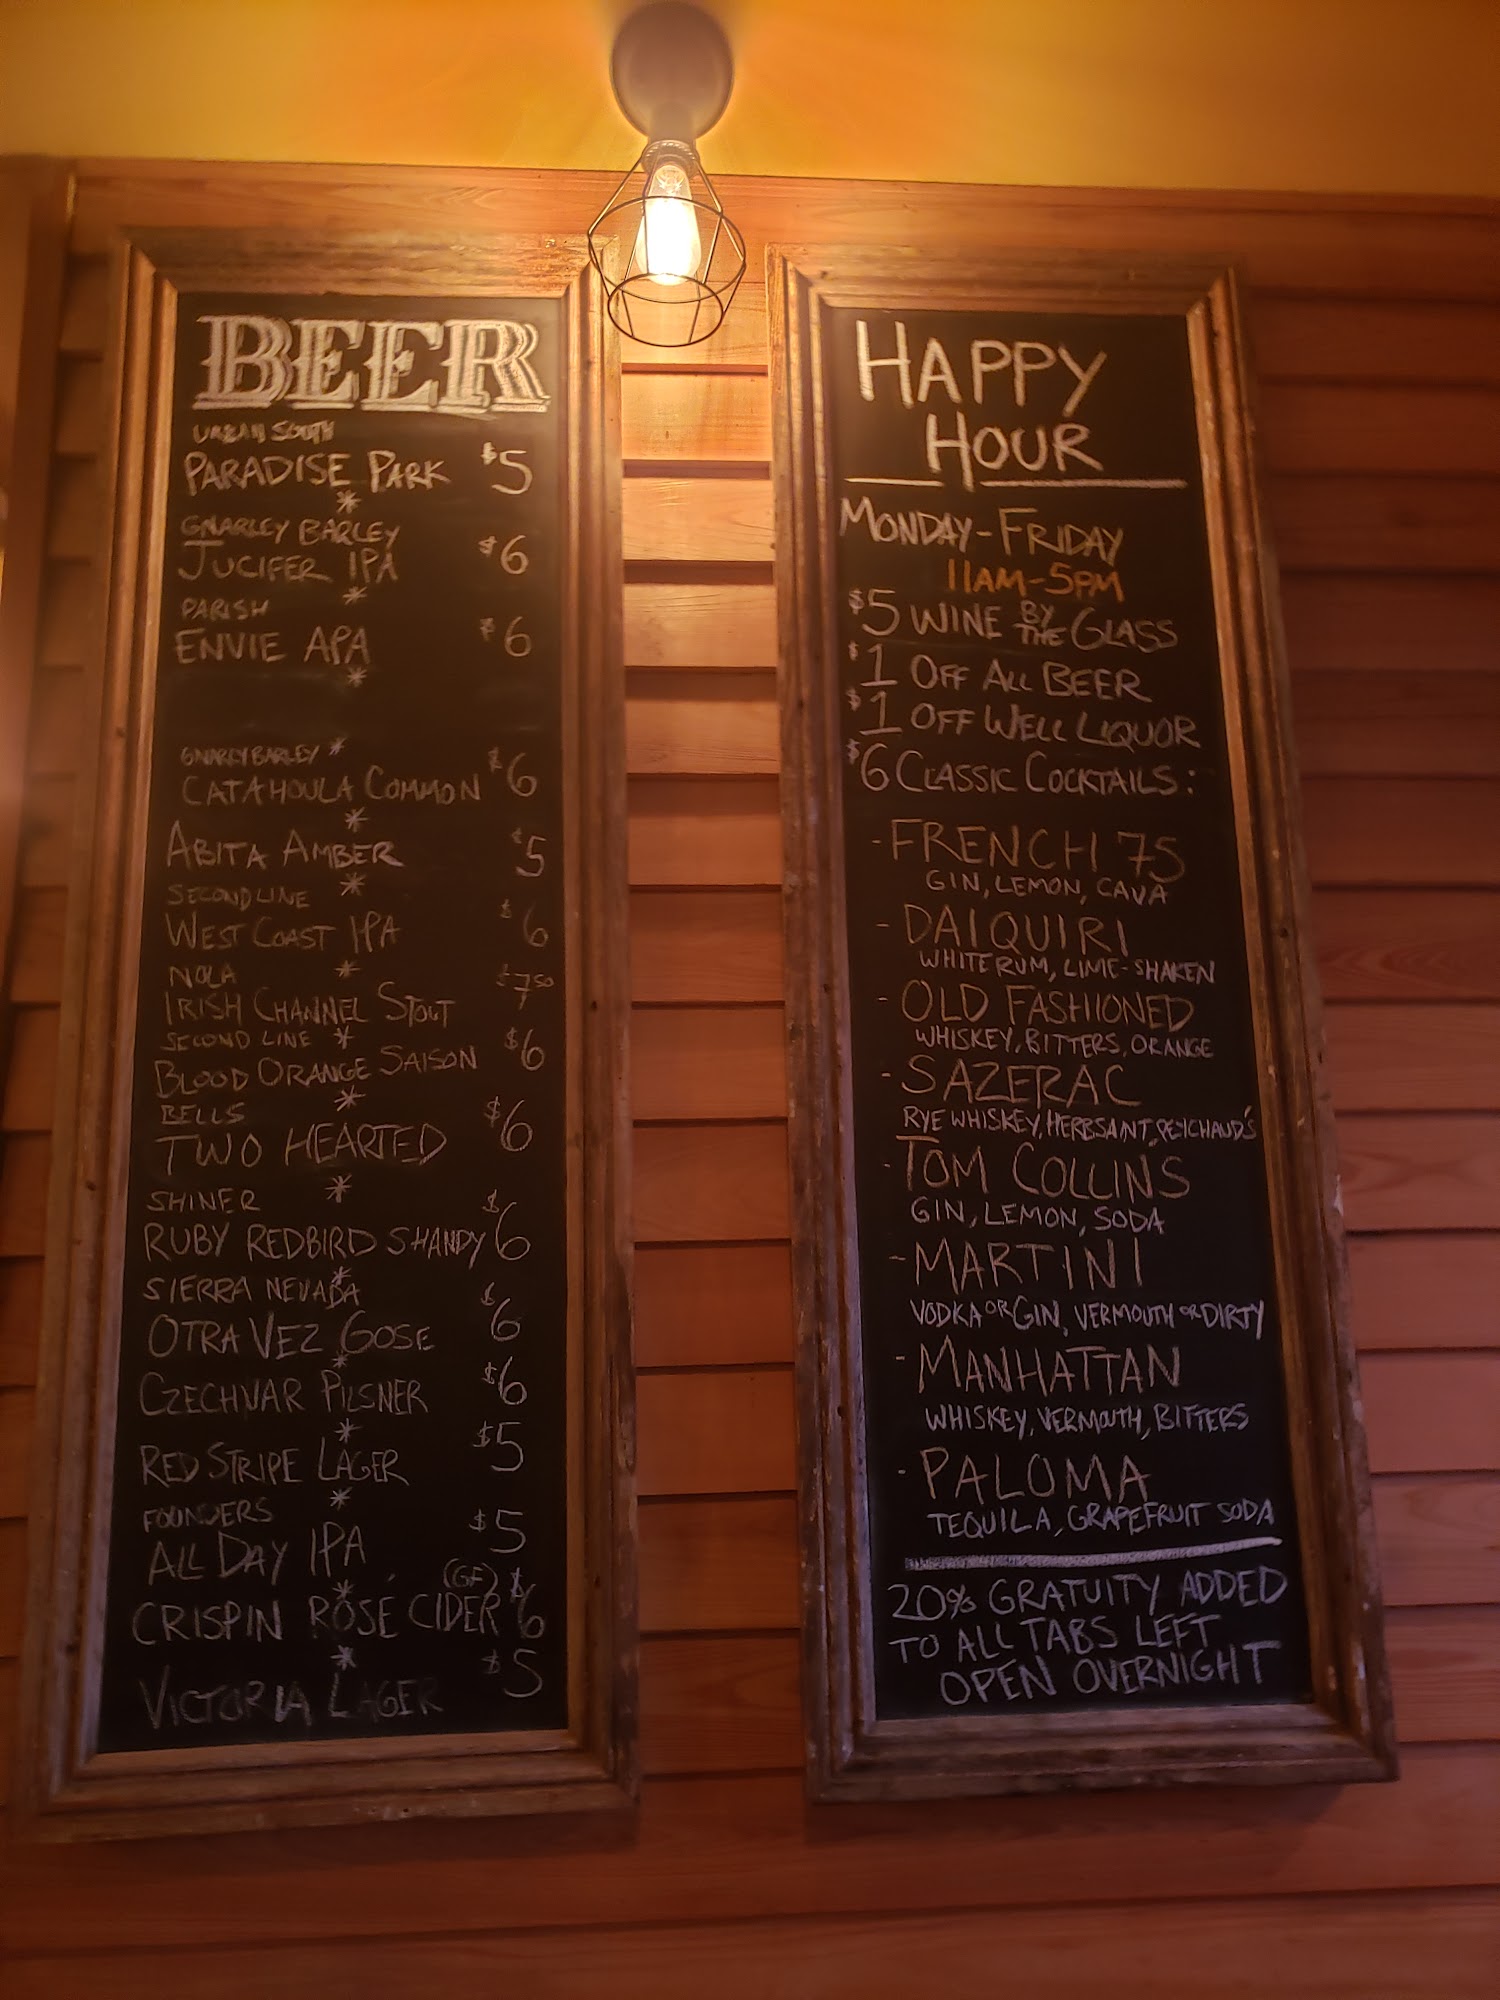 BEER
URBAN SOUTH
PARADISE PARK $5
*
GNARLEY BARLEY
JUCIFER IPA $6
*
PARISH
ENVIE APA $6
*
GNARLY BARLEY *
CATAHOULA COMMON $6
*
ABITA AMBER $5
*
SECOND LINE
WEST COAST IPA $6
*
NOLA
IRISH CHANNEL STOUT $7.50
SECOND LINE *
BLOOD ORANGE SAISON $6
*
BELLS
TWO HEARTED $6
*
SHINER
RUBY REDBIRD SHANDY $6
*
SIERRA NEVADA
OTRA VEZ GOSE $6
*
CZECHVAR PILSNER $6
*
RED STRIPE LAGER $5
*
FOUNDERS
ALL DAY IPA $5
*
(GF)
CRISPIN ROSE CIDER $6
*
VICTORIA LAGER $5
HAPPY
HOUR
MONDAY-FRIDAY
11AM-5PM
$5 WINE BY THE GLASS
$1 OFF ALL BEER
$1 OFF WELL LIQUOR
$6 CLASSIC COCKTAILS:
- FRENCH 75
GIN, LEMON, CAVA
- DAIQUIRI
WHITE RUM, LIME-SHAKEN
- OLD FASHIONED
WHISKEY, BITTERS, ORANGE
- SAZERAC
RYE WHISKEY, HERBSAINT, PEYCHAUD'S
- TOM COLLINS
GIN, LEMON, SODA
- MARTINI
VODKA OR GIN, VERMOUTH OR DIRTY
- MANHATTAN
WHISKEY, VERMOUTH, BITTERS
- PALOMA
TEQUILA, GRAPEFRUIT SODA
20% GRATUITY ADDED
TO ALL TABS LEFT
OPEN OVERNIGHT